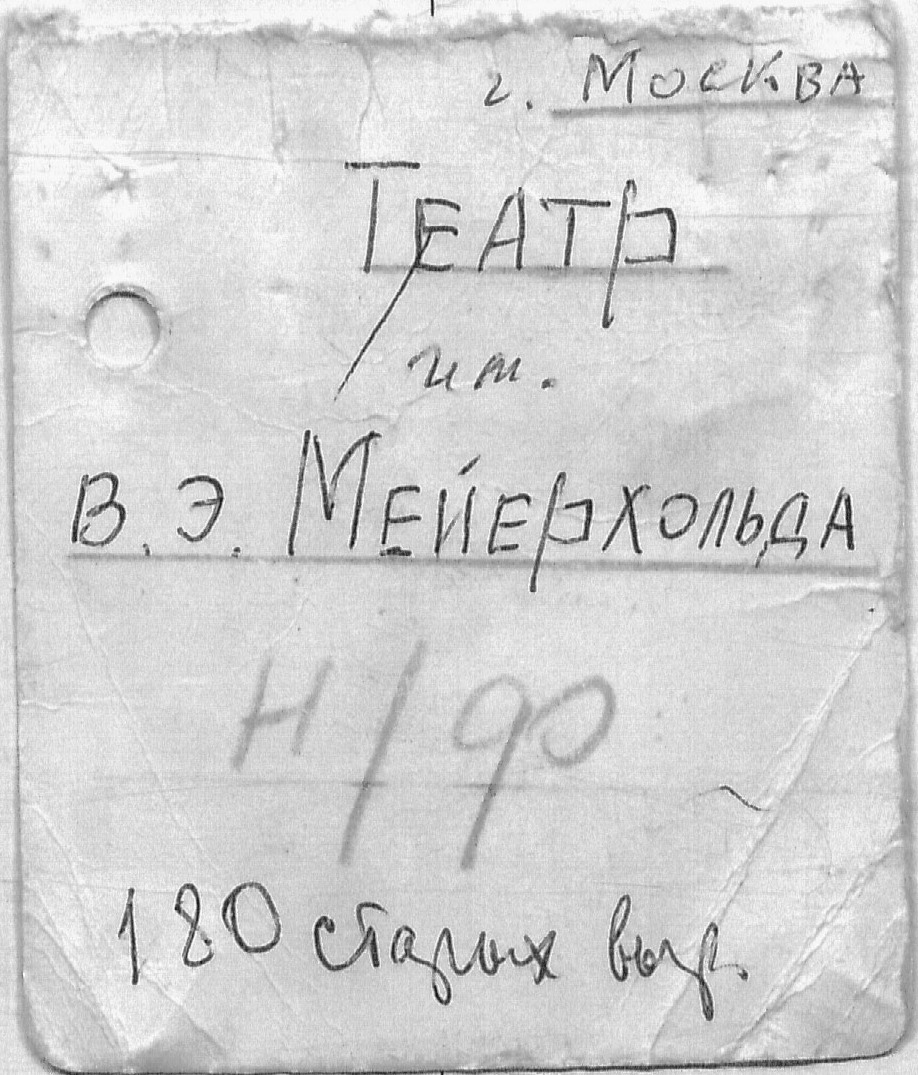 г. Москва
Театр
им.
В.Э. Мейерхольда
Н/ф
180 старых выр.